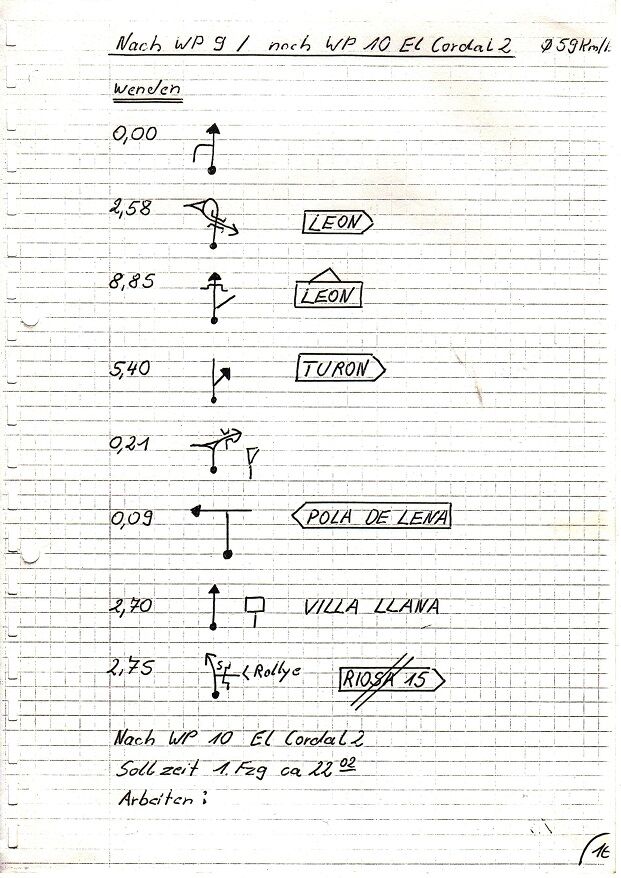 Nach WP 9 / nach WP 10 El Cordal 2 Ø 59 Km/h
Wenden
0,00
2,58 LEON
8,85 LEON
5,40 TURON
0,21
0,09 POLA DE LENA
2,70 VILLA LLANA
2,75 < Rallye RIOSA 15
Nach WP 10 El Cordal 2
Sollzeit 1. Fzg ca 22 02
Arbeiten :